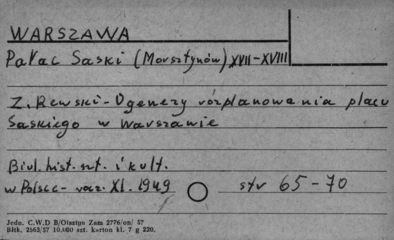 WARSZAWA
Pałac Saski (Morsztynów) XVII-XVIII
Z. Rewski - O genezy rozplanowania placu
Saskiego w Warszawie
Biul. hist. szt. i kult.
w Polsce - rocz. XI. 1949 str 65-70
Jedn. C.W.D B/Olsztyn Zam 2776/on/ 57
Bltk. 2563/57 10.000 szt. karton kl. 7 g 220.